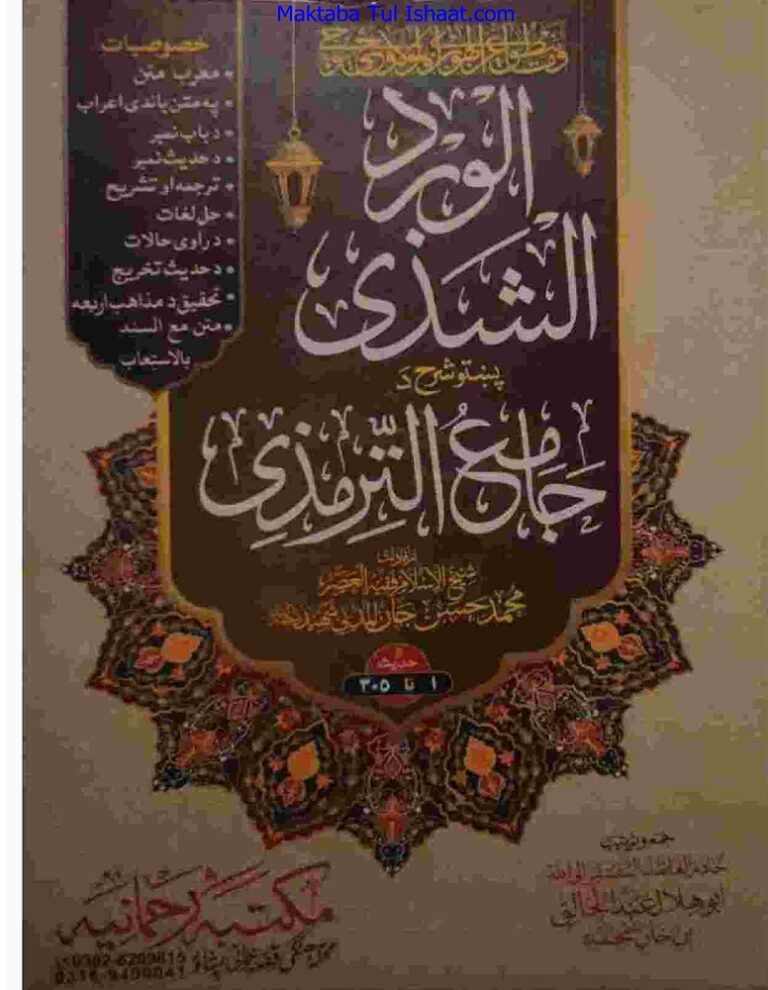 Maktaba Tul Ishaat.com
خصوصيات
• معرب متن
• په متن باندی اعراب
• د باب نمبر
• د حديث نمبر
• ترجمه او تشريح
• حل لغات
• د راوی حالات
• د حديث تخريج
• تحقيق د مذاهب اربعه
• متن مع السند
بالاستعاب
الورد
الشذی
پښتو شرح د
جامع الترمذی
شيخ الاسلام فقيه العصر
محمد حسن جان المدنی شهيد
حديث
۱ تا ۳۰۵
جمع وترتيب
ابو هلال عبد الخالق
مکتبه رحمانيه
0302-6209815
0316-9400041